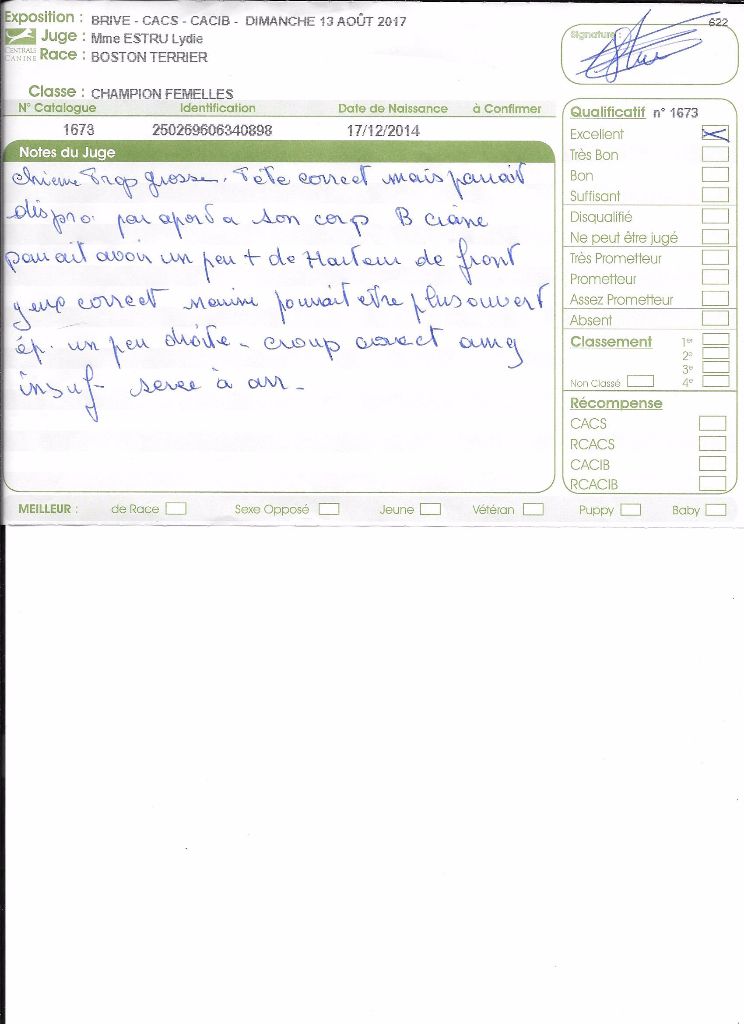 Exposition : BRIVE - CACS - CACIB - DIMANCHE 13 AOÛT 2017
622
CENTRALE CANINE
Juge : Mme ESTRU Lydie
Signature :
Race : BOSTON TERRIER
Classe : CHAMPION FEMELLES
N° Catalogue Identification Date de Naissance à Confirmer
1673 250269606340898 17/12/2014
Notes du Juge
chienne Trop grosse. Tête correct mais parrait
dispro. par aport a son corp B crâne
pourrait avoir un peu + de Hauteur de front
yeux correct narine pourrait etre plus ouvert
ép. un peu droite - croup correct ang
insuf - seree à arr -
Qualificatif n° 1673
Excellent
Très Bon
Bon
Suffisant
Disqualifié
Ne peut être jugé
Très Prometteur
Prometteur
Assez Prometteur
Absent
Classement 1er
2e
3e
Non Classé 4e
Récompense
CACS
RCACS
CACIB
RCACIB
MEILLEUR : de Race Sexe Opposé Jeune Vétéran Puppy Baby